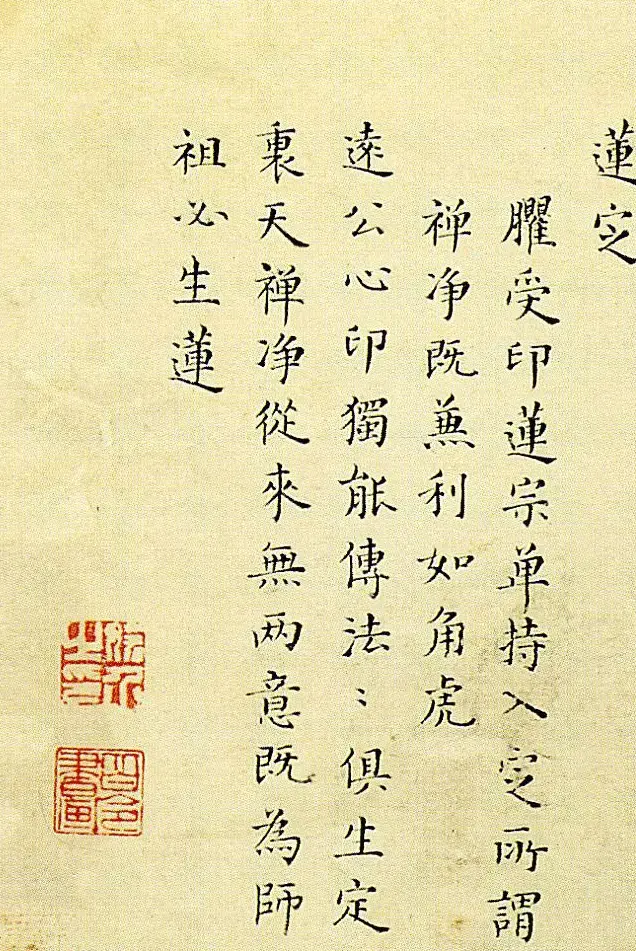 蓮定
臞受印蓮宗单持入定所謂
禅净既蒹利如角虎
遠公心印獨能傳法〻俱生定
裏天禅净從來無两意既為師
祖必生蓮